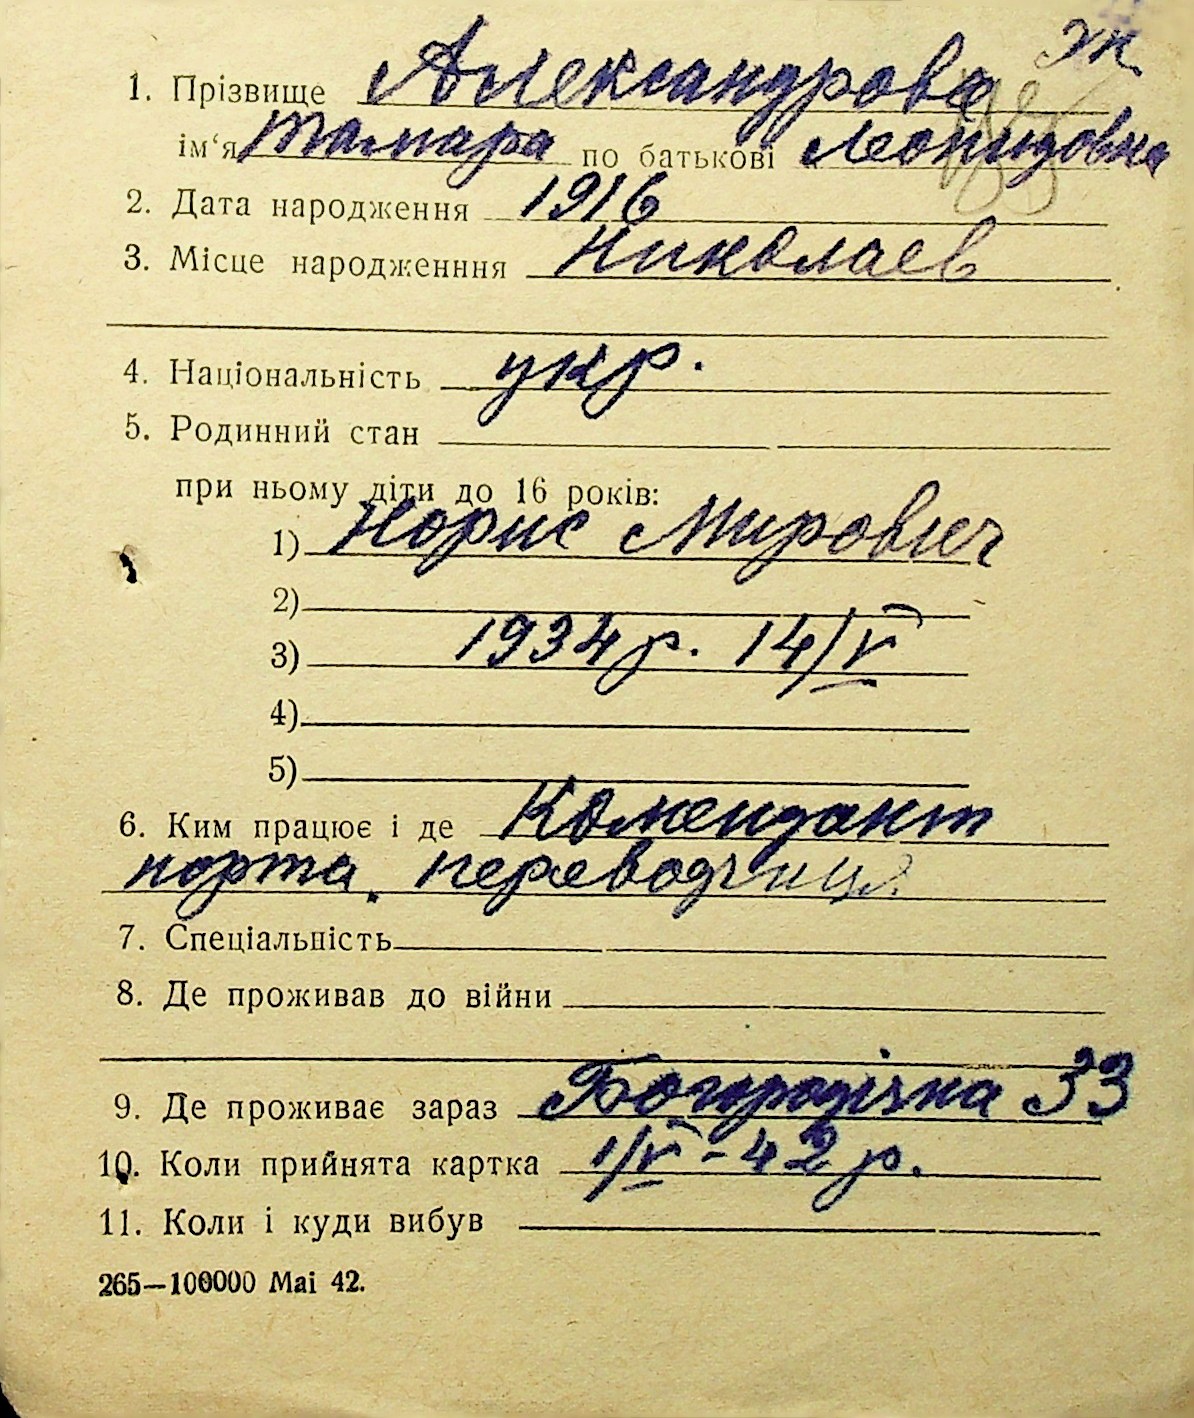 эк.
1. Прізвище Александрова
ім‘я Тамара по батькові Леонидовна
2. Дата народження 1916
3. Місце народженння Николаев
4. Національність укр.
5. Родинний стан
при ньому діти до 16 років:
1) Норис Мирович
2)
3) 1934 р. 14/V
4)
5)
6. Ким працює і де Комендант
порта. переводчиця.
7. Спеціальність
8. Де проживав до війни
9. Де проживає зараз Богородічна 33
10. Коли прийнята картка 1/V - 42 р.
11. Коли і куди вибув
265—100000 Mai 42.